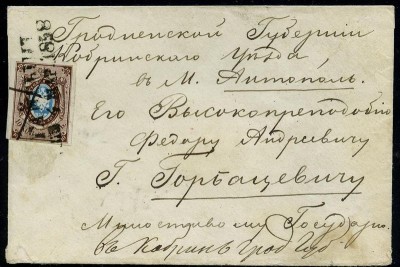 1858
Гродненской Губернии
Кобринскаго Уѣзда
въ М. Антополь.
Его Высокопреподобію
Федору Андреевичу
Г. Горбацевичу
Милостивому Государю
въ Кобринъ Грод Губ